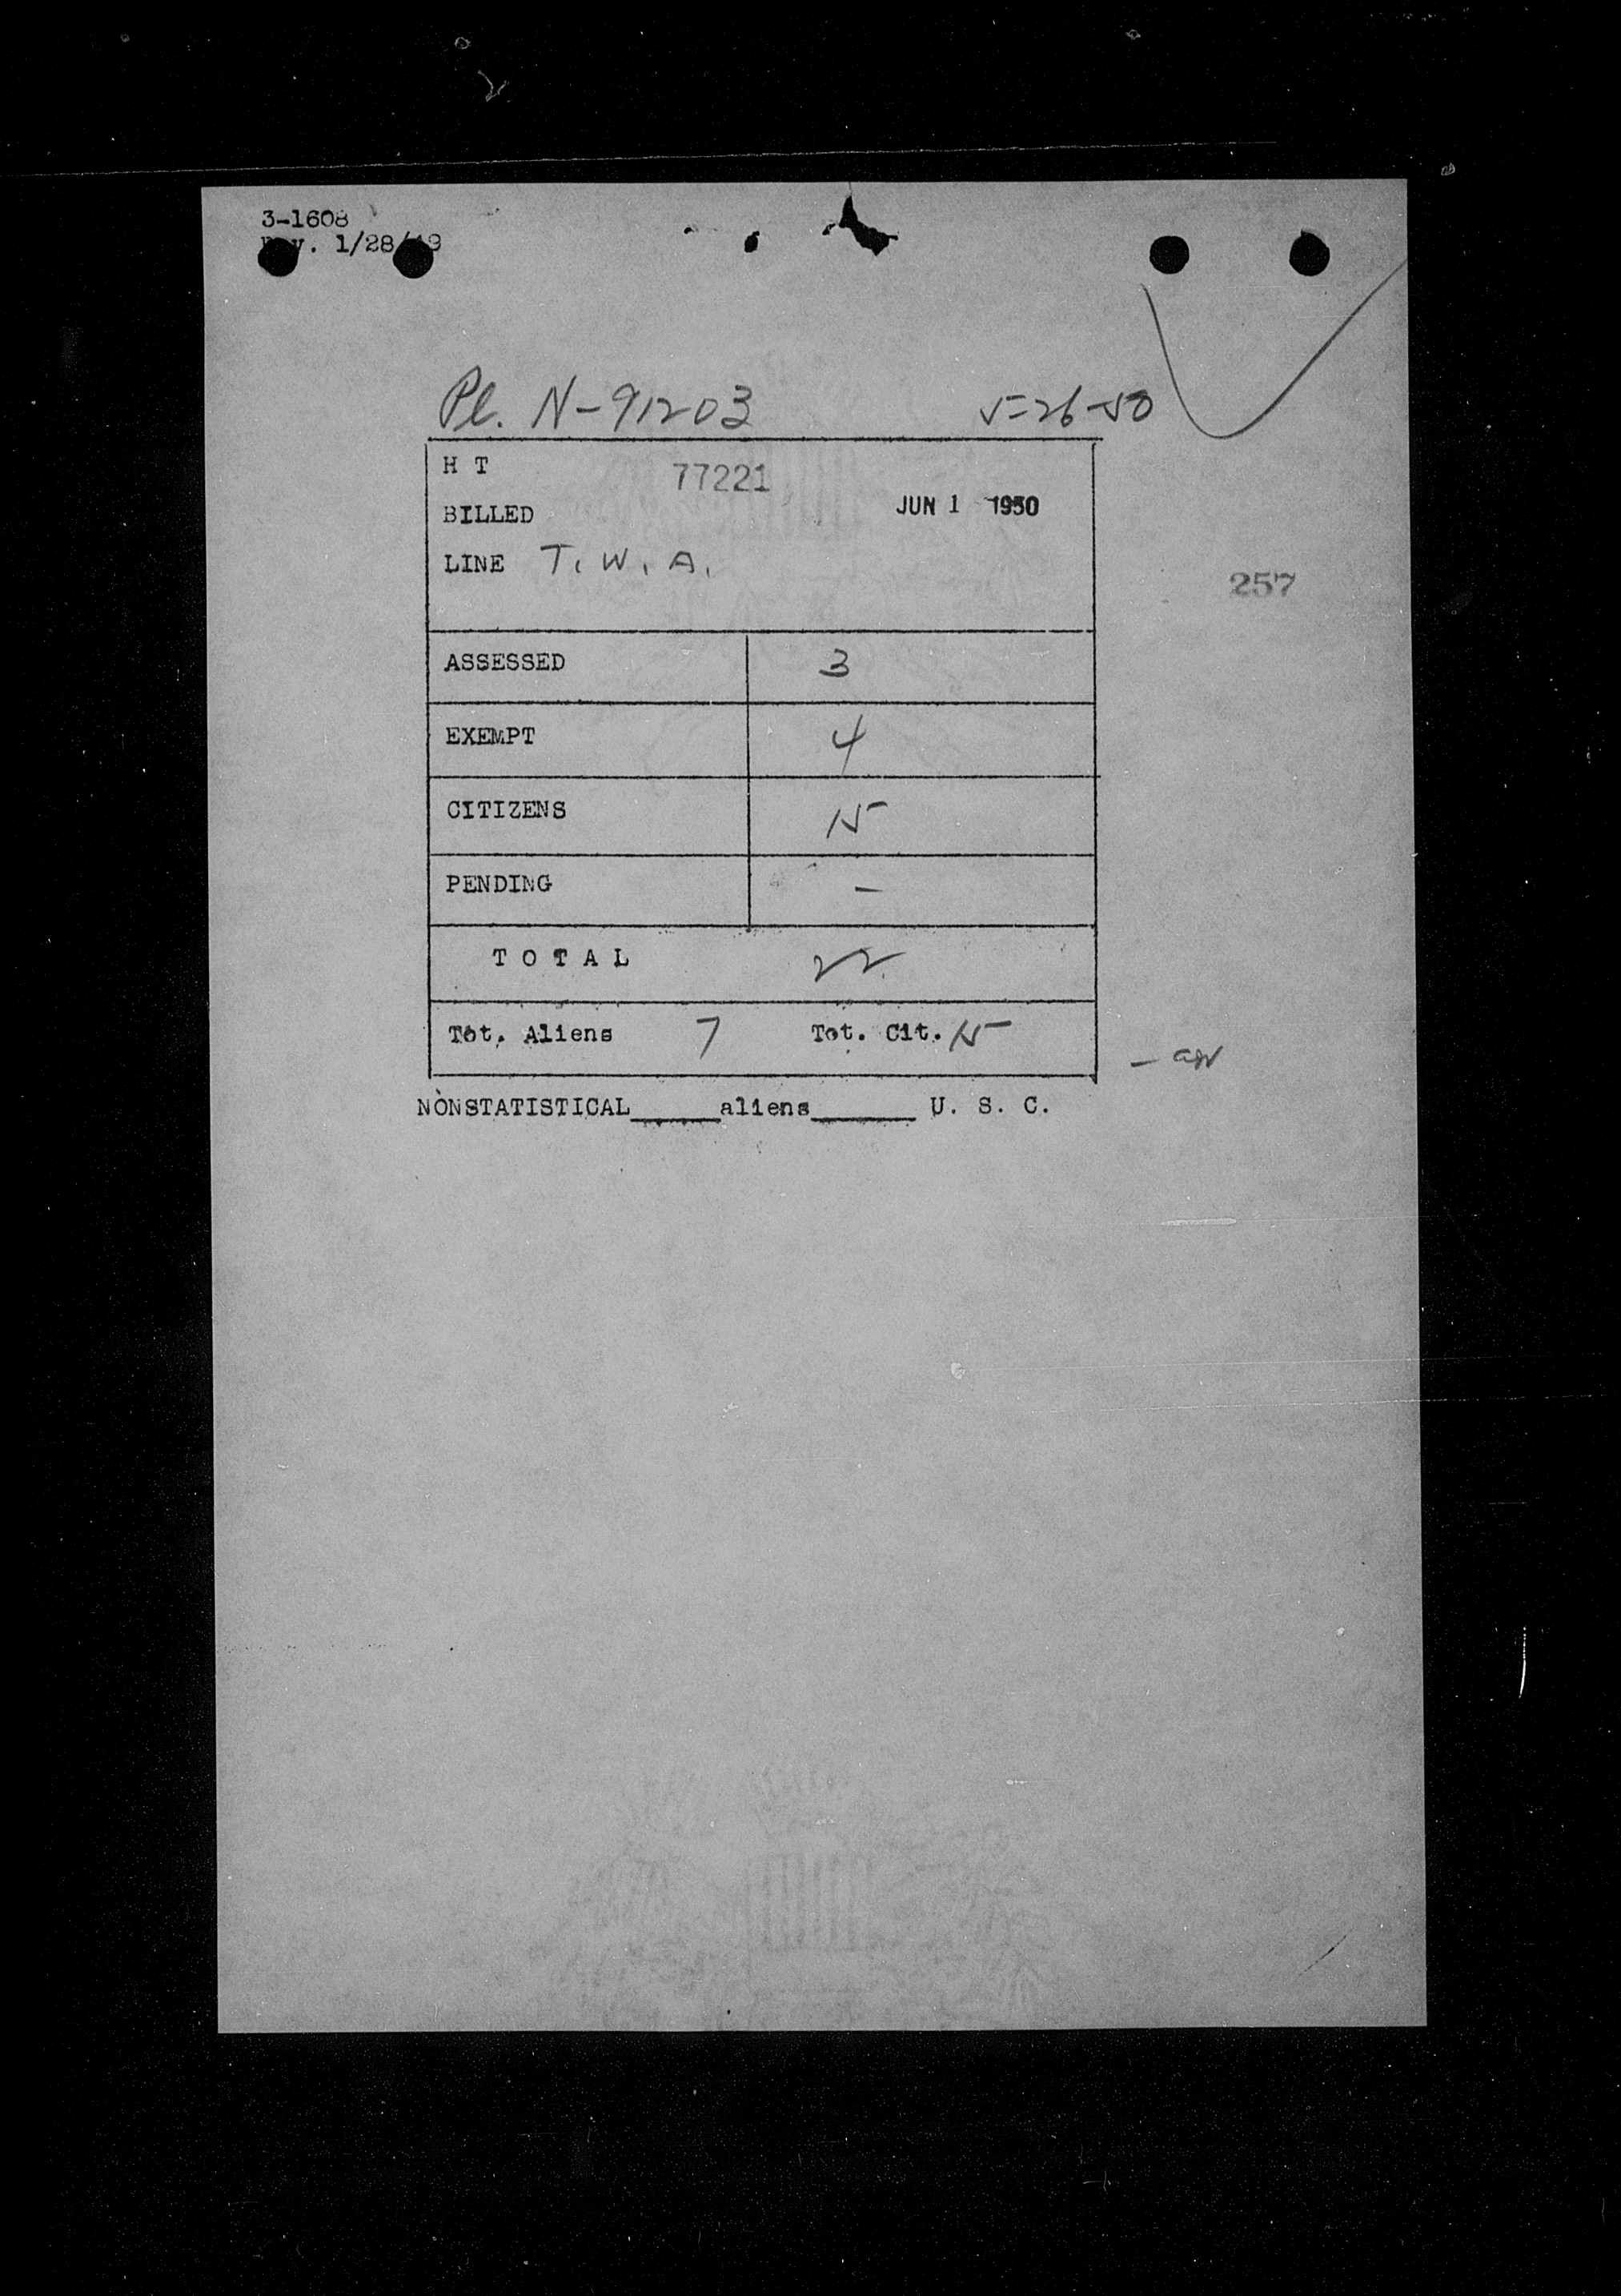 3-1608
1/28/49
Pl. N-91203 5-26-50
H T 77221
BILLED JUN 1 1950
LINE T. W. A.
257
ASSESSED 3
EXEMPT 4
CITIZENS 15
PENDING –
T O T A L 22
Tot. Aliens 7 Tot. Cit. 15
NONSTATISTICAL_____aliens______ U. S. C.